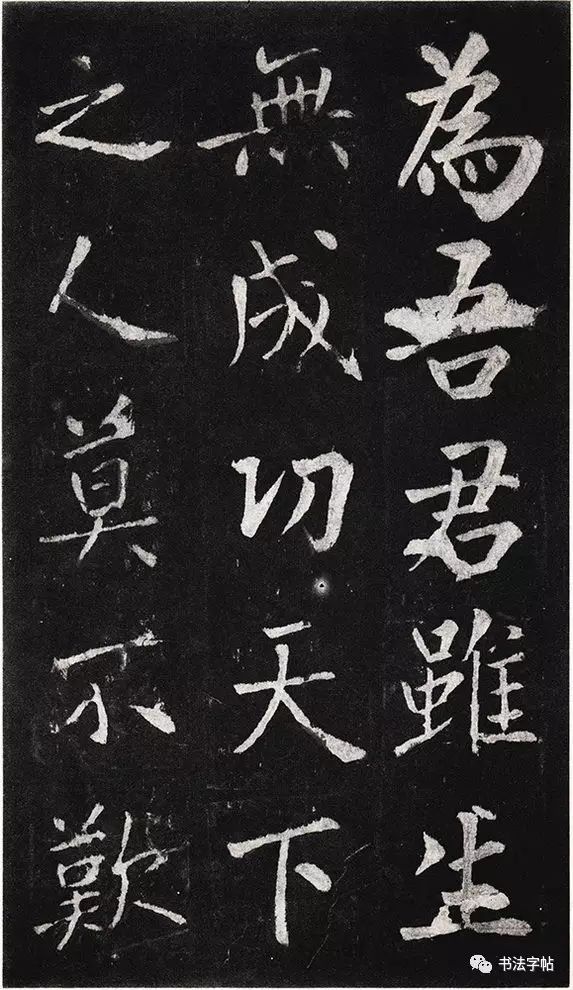 為吾君雖生
無成功天下
之人莫不歎
书法字帖